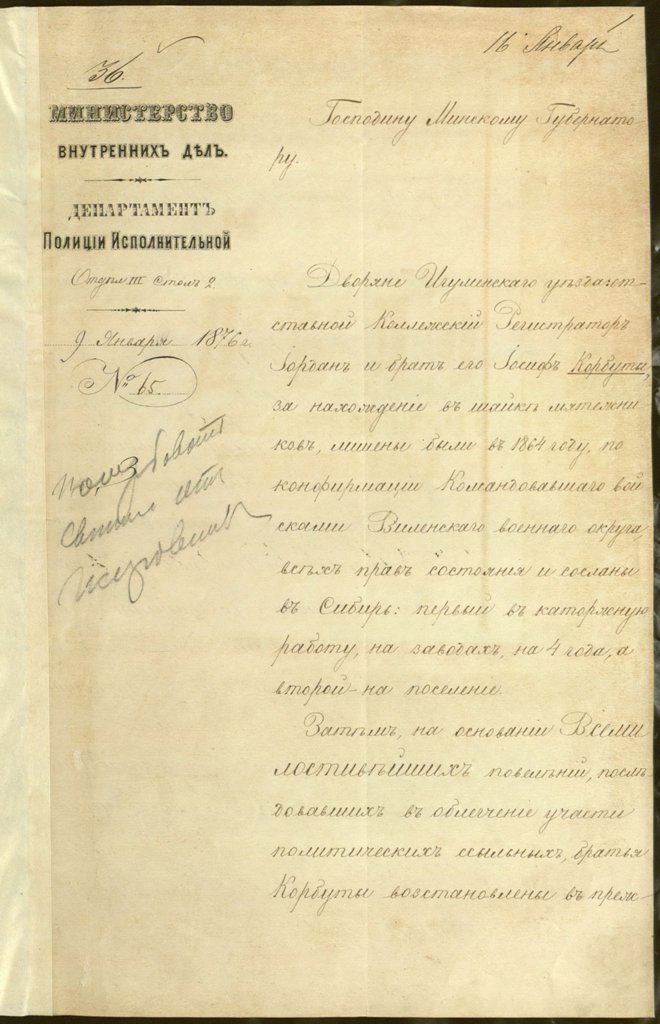 16 Января
36.
МИНИСТЕРСТВО
ВНУТРЕННИХЪ ДѢЛЪ.
ДЕПАРТАМЕНТЪ
Полиціи Исполнительной
Отдѣл III Столъ 2
9 Января 1876 г.
№ 65.
Господину Минскому Губернато-
ру.
Дворяне Игуменскаго уѣзда: от-
ставной Коллежскій Регистраторъ
Іорданъ и братъ его Іосифъ Корбуты,
за нахожденіе въ шайкѣ мятежни
ковъ, лишены были въ 1864 году, по
конфирмаціи Командовавшаго вой
сками Виленскаго военнаго округа,
всѣхъ правъ состоянія и сосланы
въ Сибирь: первый въ каторжную
работу, на заводахъ, на 4 года, а
второй – на поселеніе.
Затѣмъ, на основаніи Всеми
лостивѣйшихъ повелѣній, послѣ
довавшихъ въ облегченіе участи
политическихъ ссыльныхъ, братья
Корбуты возстановлены въ преж-